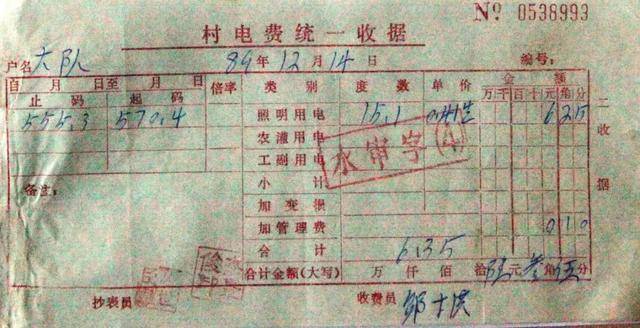 № 0538993
村电费统一收据
户名 大队 89年12月14日 编号：
自 月 日至 月 日 倍率 类别 度数 单价 金额
止码 起码 万千百十元角分
555.3 570.4 照明用电 15.1 625
农灌用电
工副用电
水审字(4)
小计
备注：
加变损
加管理费 010
合计 6.35
合计金额(大写) 万 仟 佰 拾陆元叁角伍分
抄表员 收费员 邹
二收据